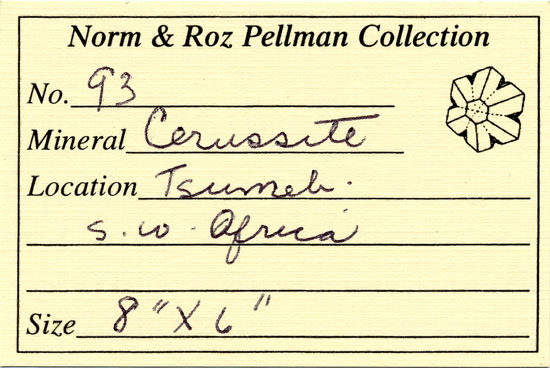 Norm & Roz Pellman Collection
No. 93
Mineral Cerussite
Location Tsumeb.
S. W. Africa
Size 8" X 6"